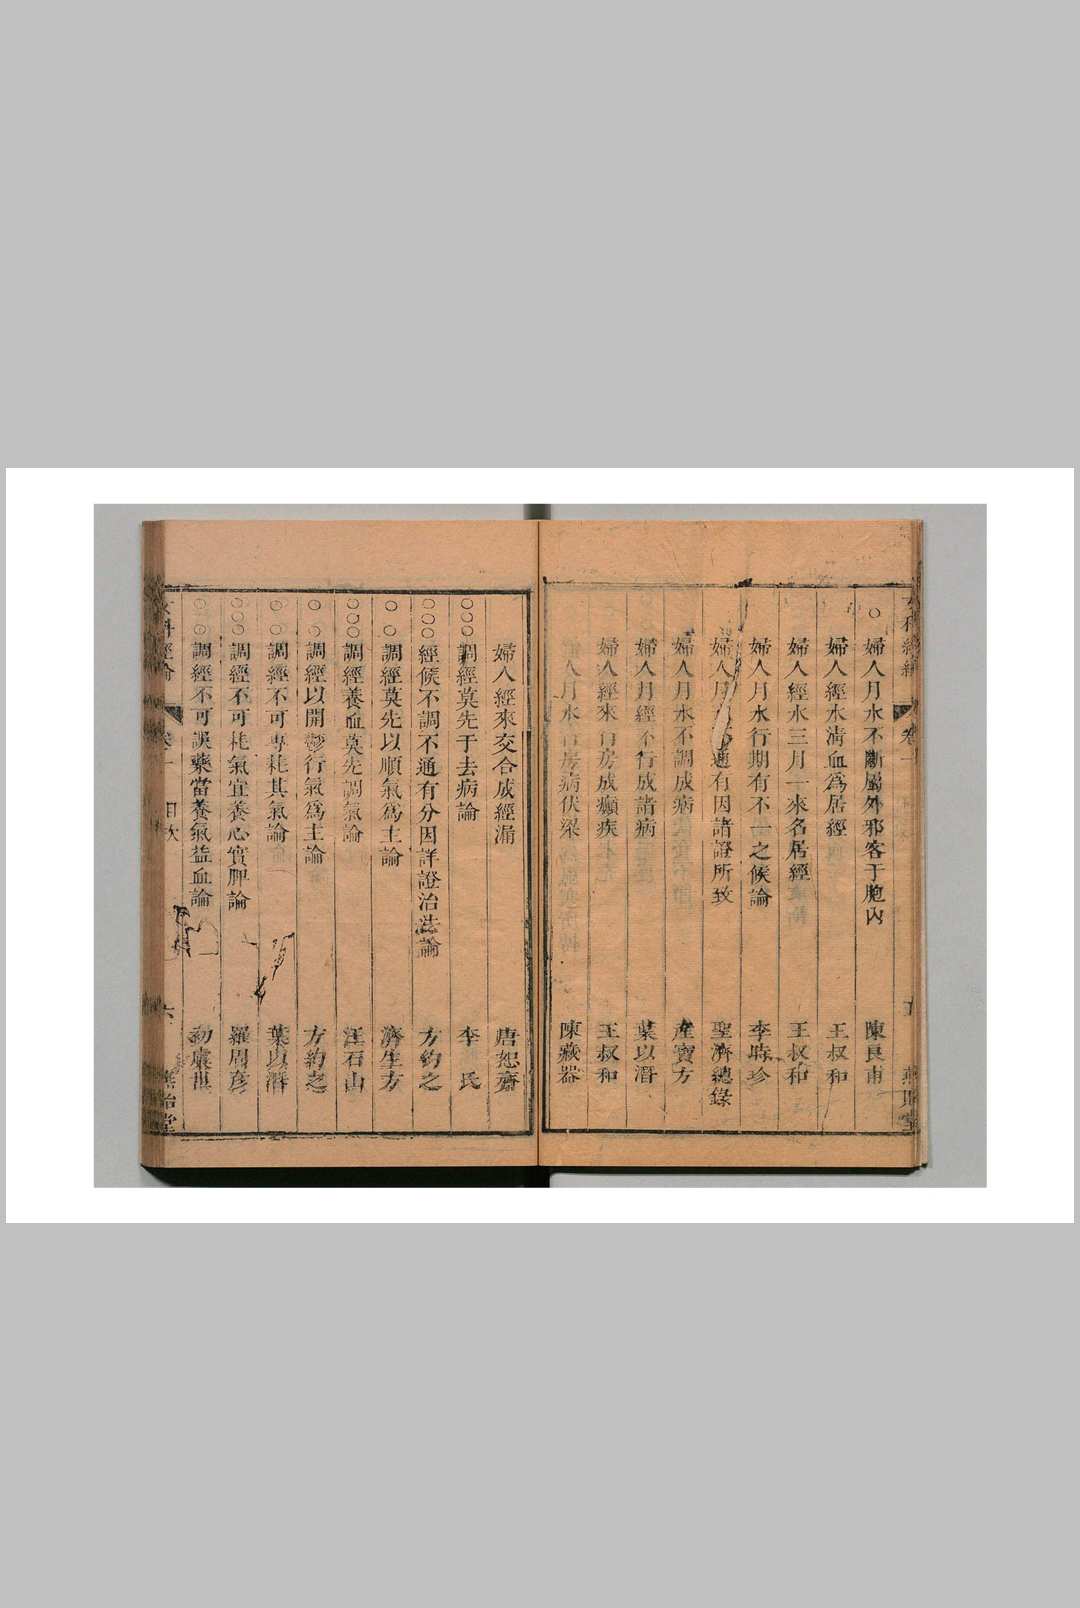 婦人月水不斷屬外邪客于胞內 陳良甫
婦人經水淸血為居經 王叔和
婦人經水三月一來名居經 王叔和
婦人月水行期有不一之候論 李時珍
婦人月 通有因諸證所致 聖濟總錄
婦人月水不調成病 產寶方
婦人月經不行成諸病 葉以潛
婦人經來 房成癲疾 王叔和
人月水 房病伏梁 陳藏器
婦人經來交合成經漏 唐恕齋
○○○調經莫先于去病論 李氏
○○○經候不調不通有分因詳證治法論 方約之
○○調經莫先以順氣為主論 濟生方
○○○調經養血莫先調氣論 汪石山
○○調經以開鬱行氣為主論 方約之
○○調經不可專耗其氣論 葉以潛
○○○調經不可耗氣宜養心實脾論 羅周彥
○○調經不可誤藥當養氣益血論 初虞世
女科經論 卷一 目次 六 燕貽堂